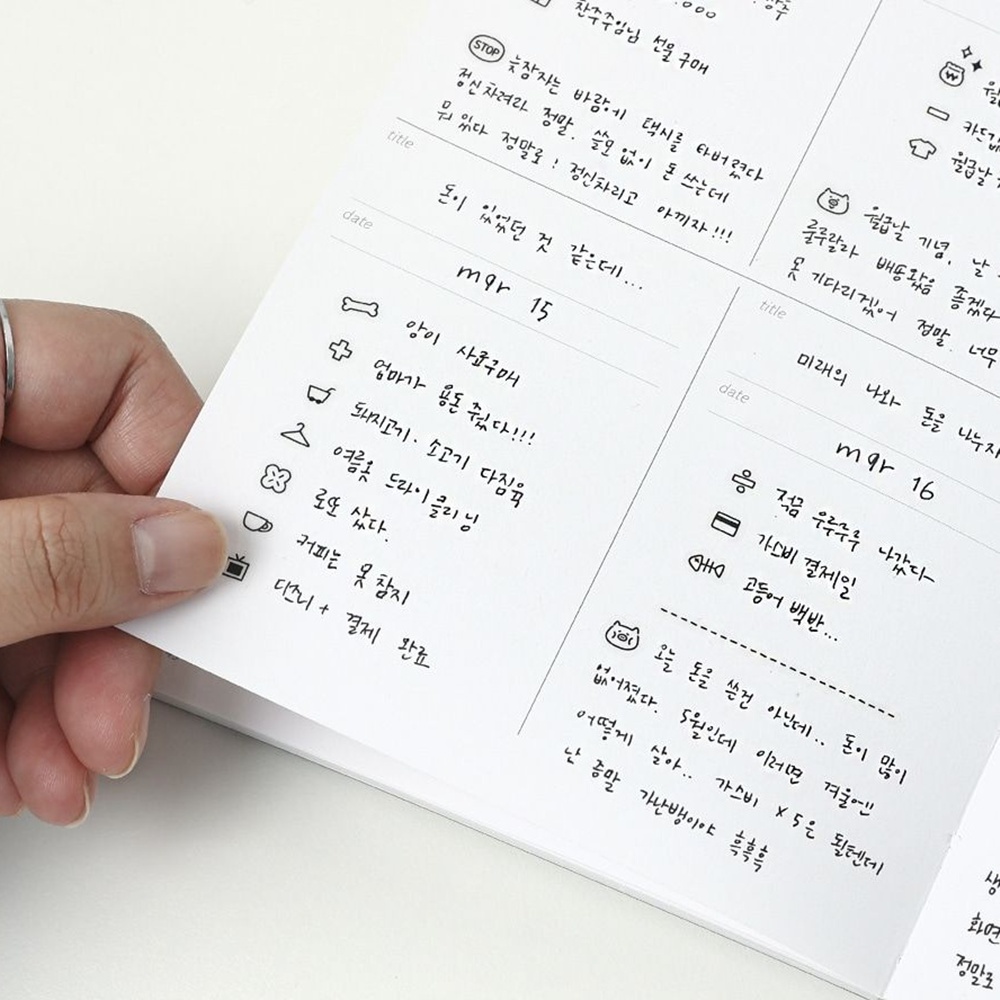 선물 구매
STOP 늦잠자는 바람에 택시를 타버렸다
정신차려라 정말. 쓸모 없이 돈 쓰는데
뭐 있다 정말로! 정신차리고 아끼자!!!
title
돈이 있었던 것 같은데...
date
mar 15
앙이 사료구매
엄마가 용돈 줬다!!!
돼지고기. 소고기 다짐육
여름옷 드라이클리닝
로또 샀다.
커피는 못 참지
디즈니 + 결제 완료
카드값
월급날
월급날 기념. 날
룰루랄라 배송왔음 좋겠다
못 기다리겠어 정말. 너무
title
미래의 나와 돈을 나누자
date
mar 16
적금 우루루루 나갔다~
가스비 결제일
고등어 백반...
오늘 돈을 쓴건 아닌데.. 돈이 많이
없어졌다. 5월인데 이러면 겨울엔!!
어떻게 살아.. 가스비 x 5은 될텐데
난 증말 가난뱅이야 흑흑흑
화면
정말로